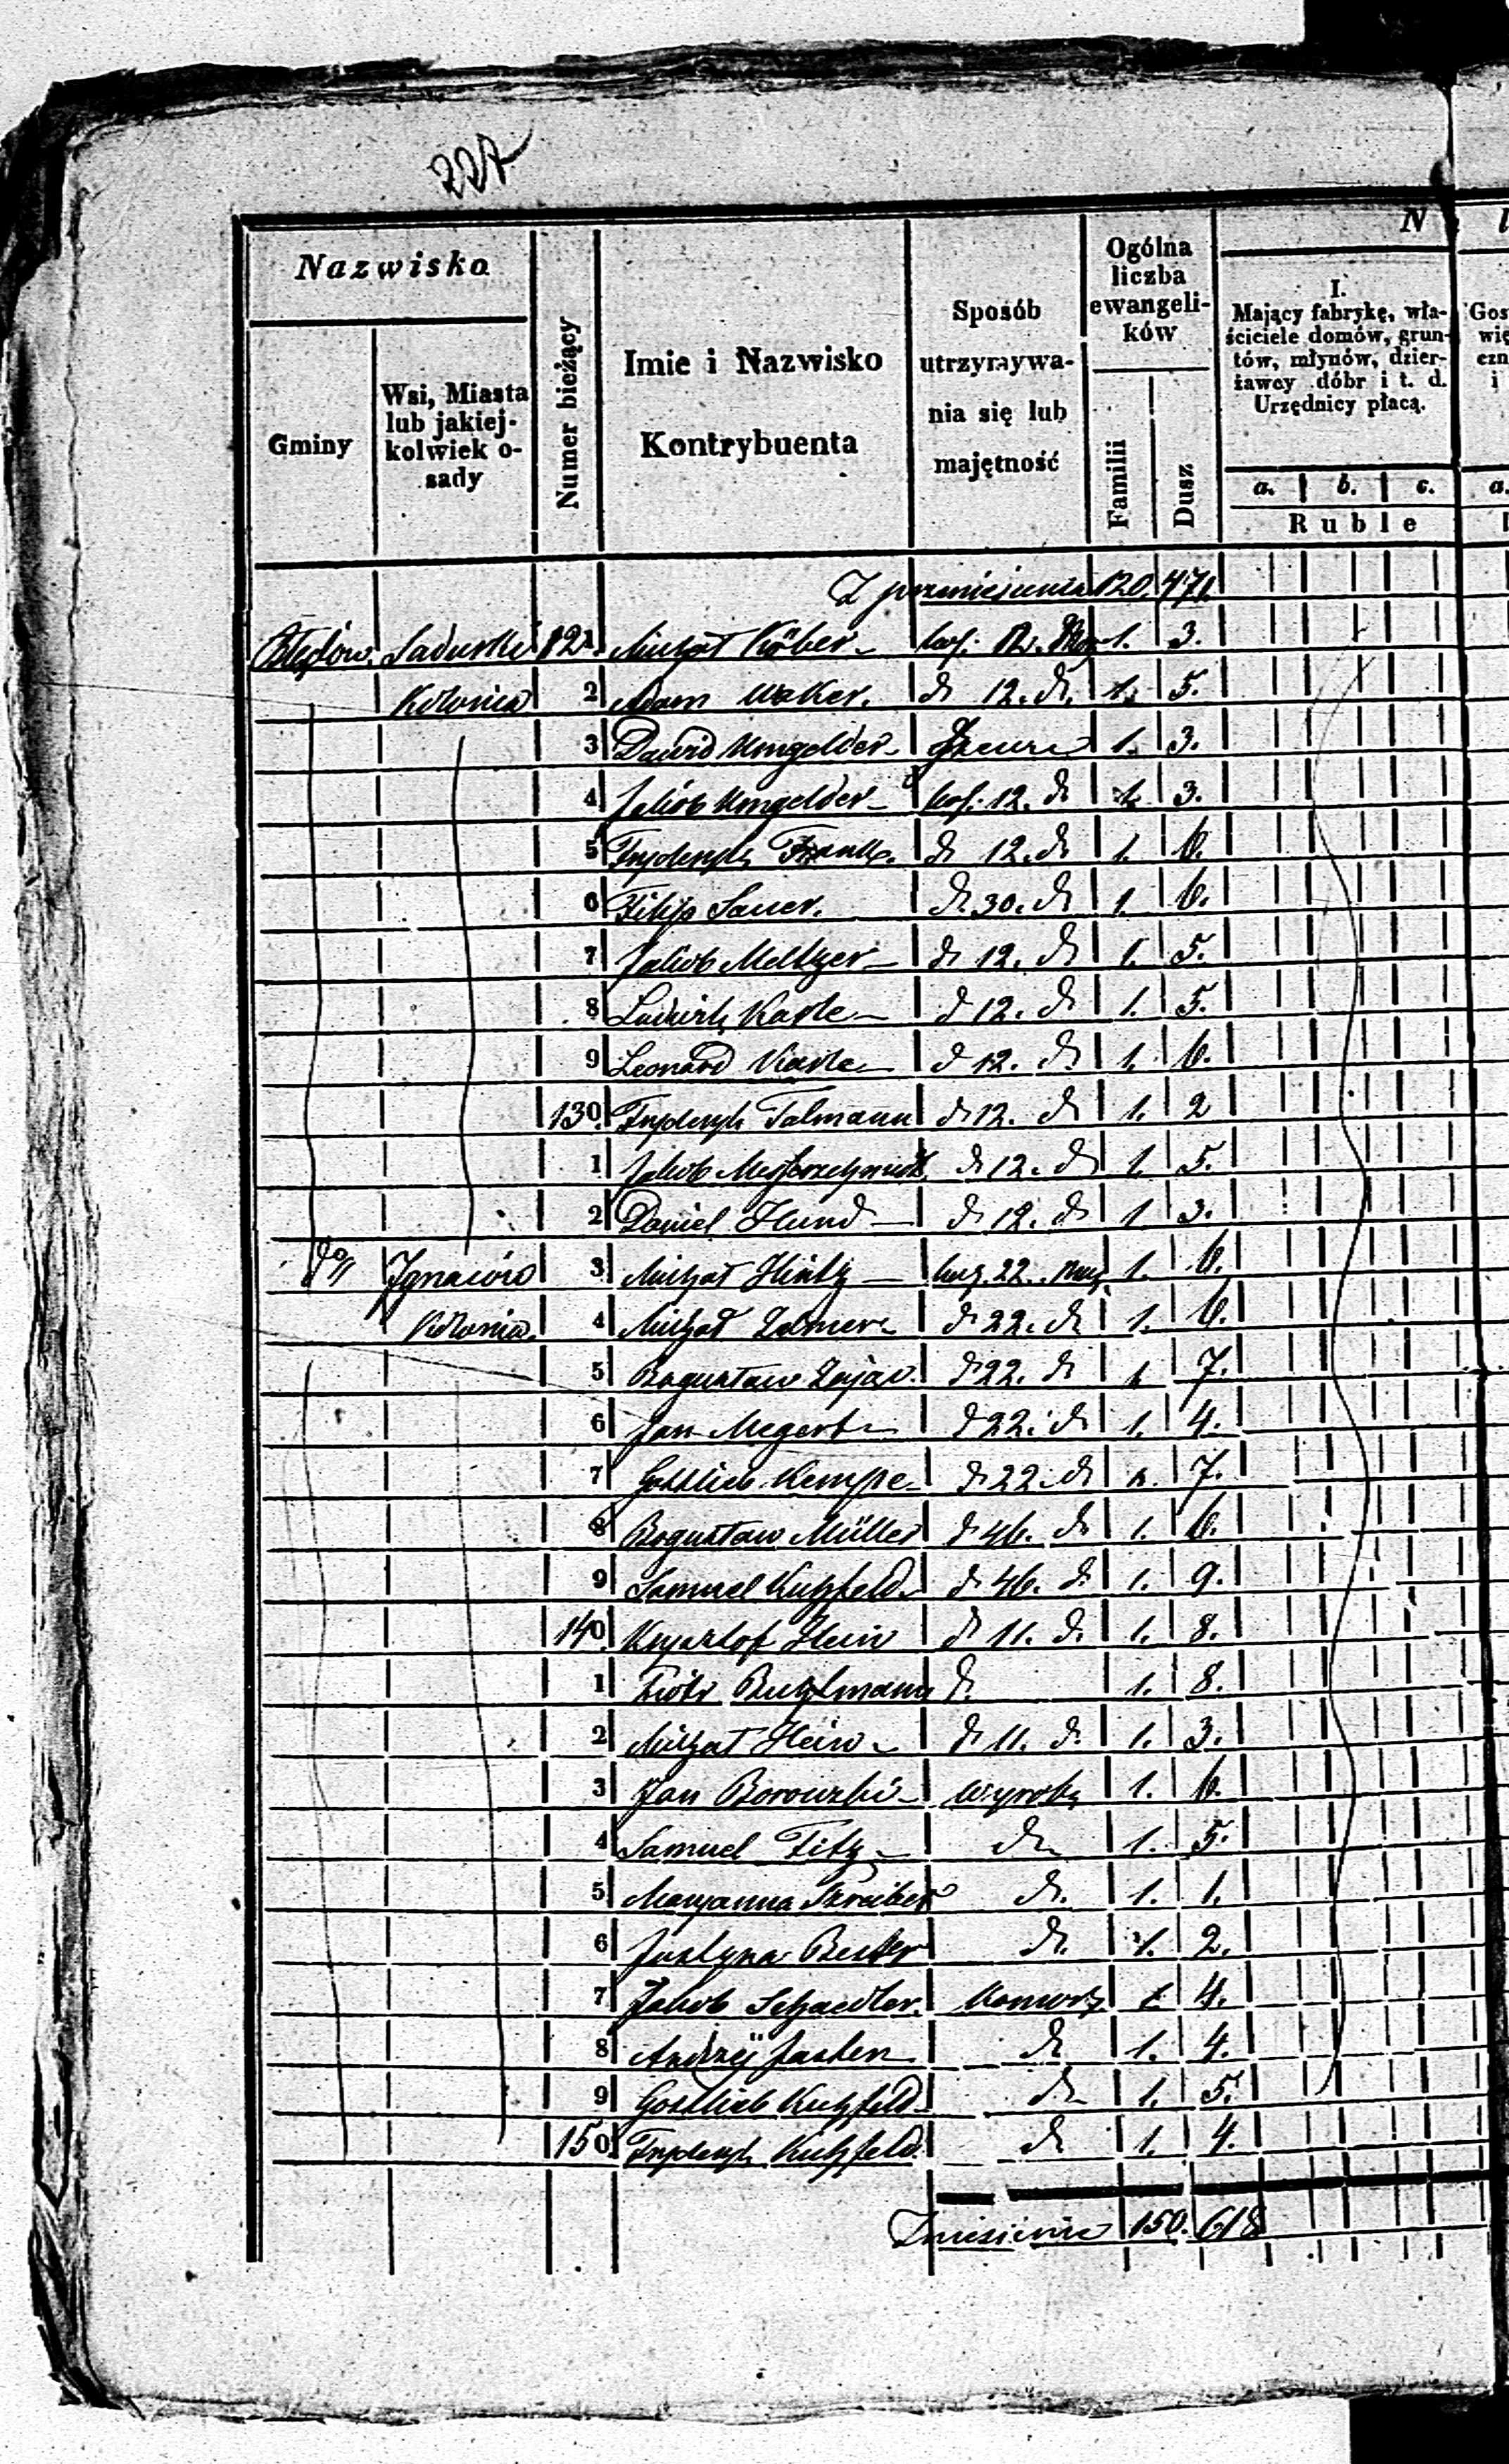 227
N
Nazwisko
Gminy
Wsi, Miasta
lub jakiej-
kolwiek o-
sady
Numer bieżący
Imie i Nazwisko
Kontrybuenta
Sposób
utrzymywa-
nia się lub
majętność
Ogólna
liczba
ewangeli-
ków
Familii
Dusz
I.
Mający fabrykę, wła-
ściciele domów, grun-
tów, młynów, dzier-
żawcy dóbr i t. d.
Urzędnicy płacą.
a. b. c.
Ruble
Z przeniesienia 120. 471.
Błędów. Sadurki 121. Michał Köber 12. 1. 3.
Kolonia 2 Adam Waker. d 12. d. 1. 5.
3 Dawid Umgelder 1. 3.
4 Jakób Umgelder 12. d 1. 3.
5 Fryderyk Frank. d 12. d 1. 6.
6 Filip Sauer. d. 30. d 1. 6.
7 Jakob Meltzer d 12. d 1. 5.
8 Ludwik Karle d 12. d 1. 5.
9 Leonard Karle d 12. d 1. 6.
130. Fryderyk Talmann d 12. d 1. 2
1 Jakob d 12. d 1. 5.
2 Daniel Hund d 12. d 1. 3.
do Ignaców 3 Michał Hintz 22. 1. 6.
Kolonia. 4 Michał d 22. d 1. 6.
5 Bogusław Zając. d 22. d 1. 7.
6 Jan Megert d 22. d 1. 4.
7 Gottlieb Kempe d 22. d 1. 7.
8 Bogusław Müller d 46. d 1. 6.
9 Samuel Kuhfeld d 46. d. 1. 9.
140. Krysztof Hein d 11. d. 1. 8.
1 Piotr d. 1. 8.
2 Michał Hein d 11. d. 1. 3.
3 Jan Borowski wyrobk 1. 6.
4 Samuel Fitz d 1. 5.
5 Maryanna Skreiber d. 1. 1.
6 Justyna Becker d. 1. 2.
7 Jakob Schaedler. Komor 1. 4.
8 Andrzéj d 1. 4.
9 Gottlieb Kuhfeld d 1. 5.
150 Fryderyk Kuhfeld. d 1. 4.
Zniesienie 150. 618